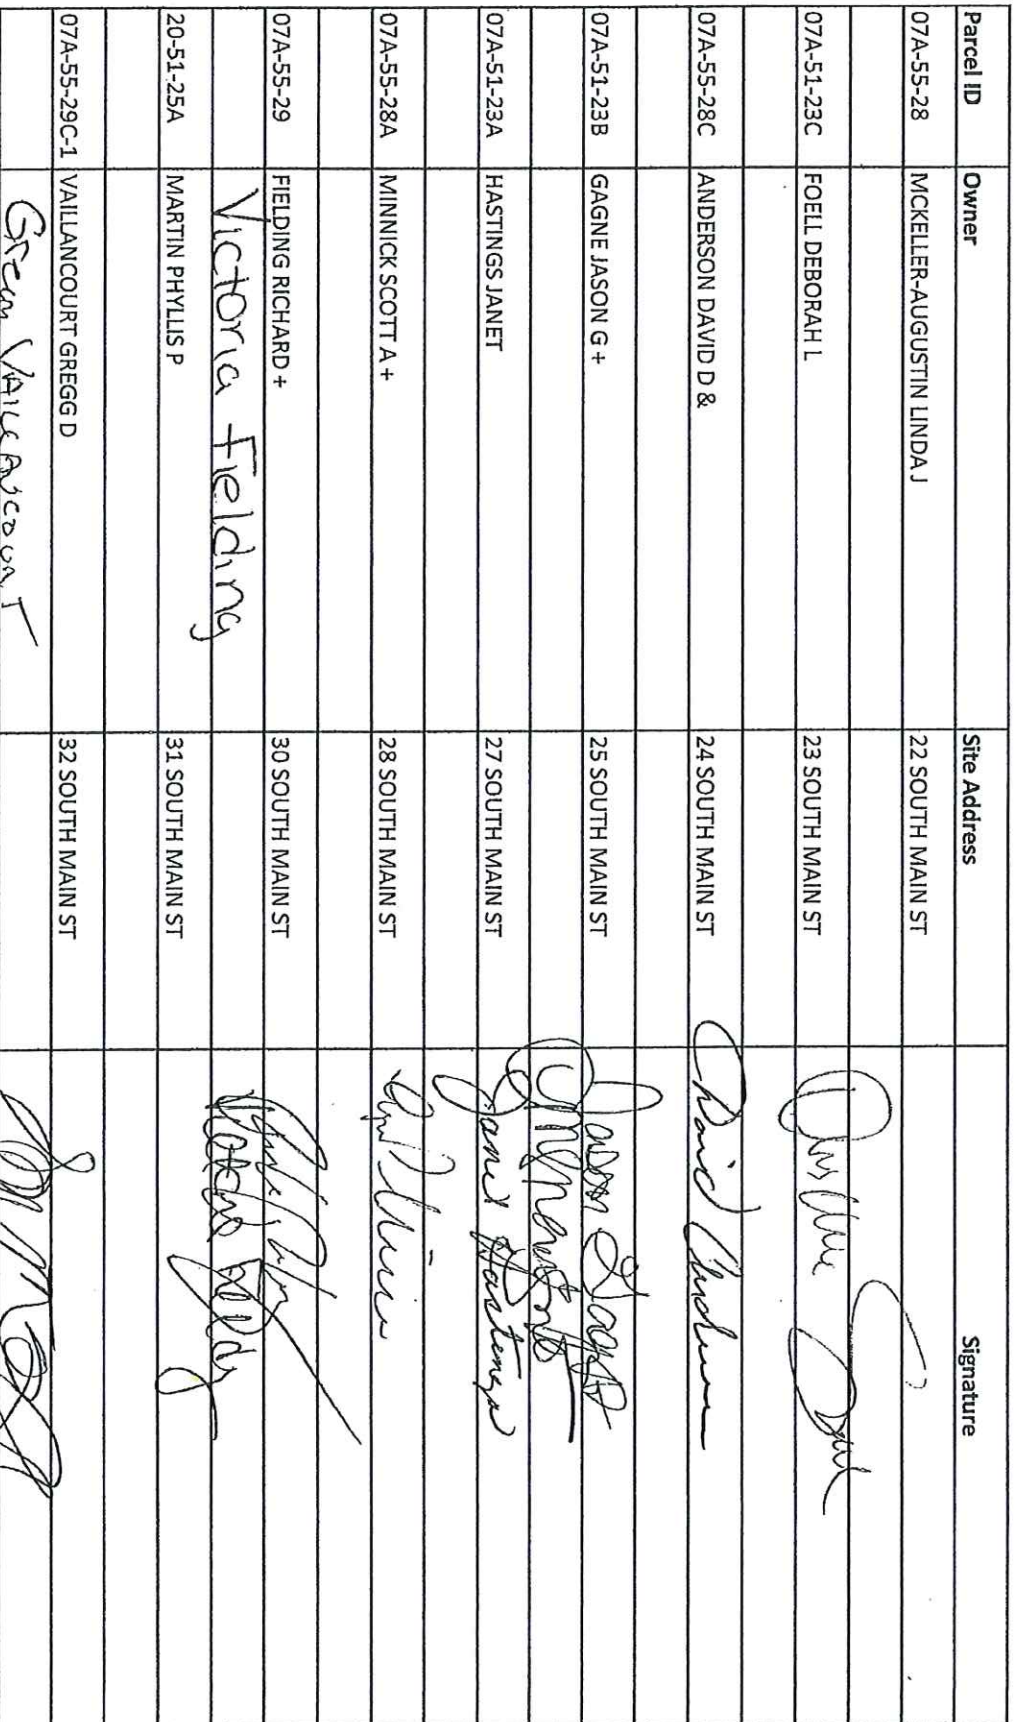 Parcel ID Owner Site Address Signature
07A-55-28 MCKELLER-AUGUSTIN LINDA J 22 SOUTH MAIN ST
07A-51-23C FOELL DEBORAH L 23 SOUTH MAIN ST
07A-55-28C ANDERSON DAVID D & 24 SOUTH MAIN ST David
07A-51-23B GAGNE JASON G + 25 SOUTH MAIN ST Jason Gagne
07A-51-23A HASTINGS JANET 27 SOUTH MAIN ST Janet Hastings
07A-55-28A MINNICK SCOTT A + 28 SOUTH MAIN ST
07A-55-29 FIELDING RICHARD + 30 SOUTH MAIN ST
Victoria Fielding
20-51-25A MARTIN PHYLLIS P 31 SOUTH MAIN ST
07A-55-29C-1 VAILLANCOURT GREGG D 32 SOUTH MAIN ST
VAILLANCOURT